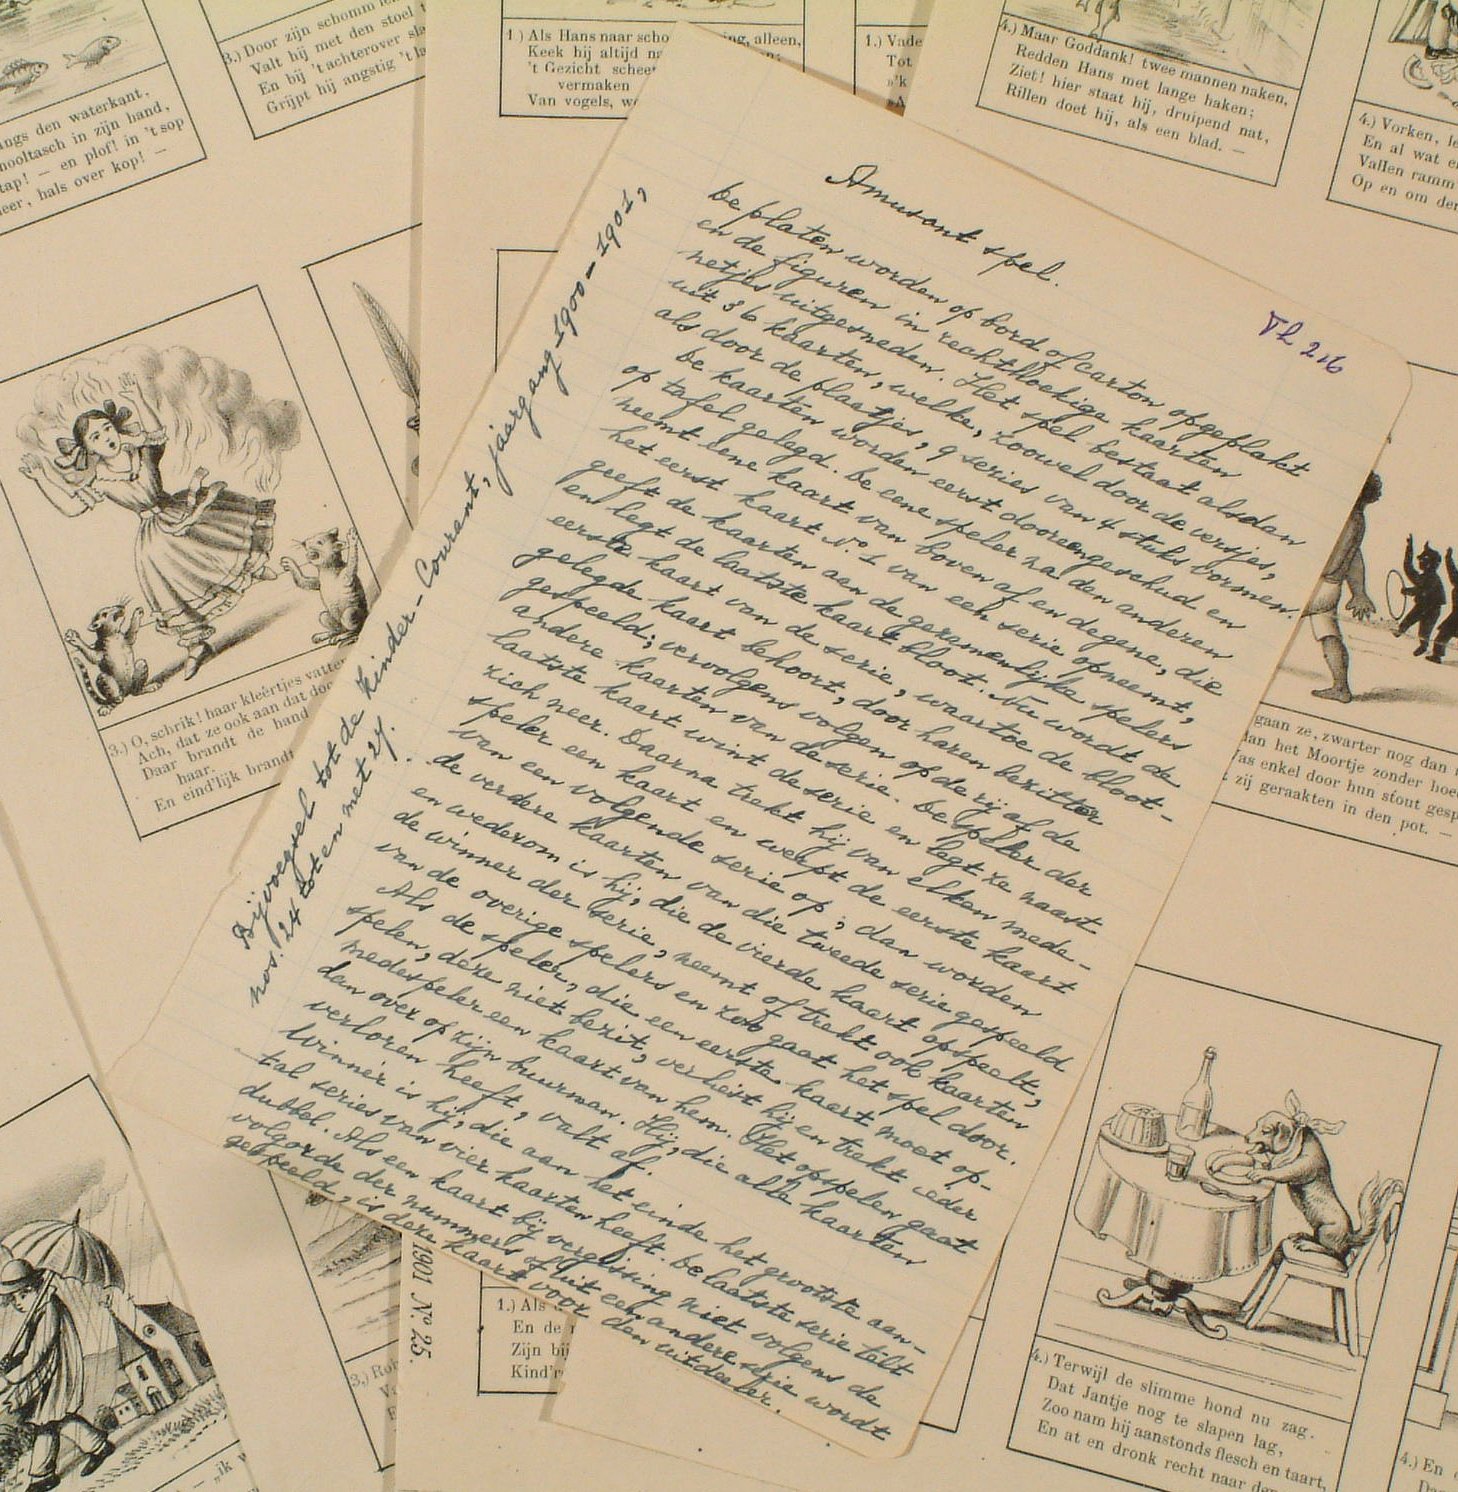 3.) Door zijn schomm
Valt hij met den stoel
En bij 't achterover
Grijpt hij angstig 't
1.) Als Hans naar
ing, alleen,
Keek hij altijd
't Gezicht
vermaken
Van vogels,
1.) Vade
Tot
4.) Maar Goddank! twee mannen naken,
Redden Hans met lange haken;
Ziet! hier staat hij, druipend nat,
Rillen doet hij, als een blad. —
4.) Vorken,
En al wat
Vallen
Op en om
den waterkant,
in zijn hand,
— en plof! in 't sop
hals over kop! —
Amusant spel.
Vl 216
De platen worden op bord of carton opgeplakt
en de figuren in rechthoekige kaarten
netjes uitgesneden. Het spel bestaat alsdan
uit 36 kaarten, welke, zoowel door de versjes,
als door de plaatjes, 9 series van 4 stuks vormen.
De kaarten worden eerst dooreengeschud en
op tafel gelegd. De eene speler na den anderen
neemt eene kaart van boven af en degene, die
het eerst kaart No. 1 van een serie opneemt,
geeft de kaarten aan de gezamenlijke spelers
en legt de laatste kaart bloot. Nu wordt de
eerste kaart van de serie, waartoe de bloot-
gelegde kaart behoort, door haren bezitter
gespeeld; vervolgens volgen op de rij af de
andere kaarten van de serie. De speler der
laatste kaart wint de serie en legt ze naast
zich neer. Daarna trekt hij van elken mede-
speler een kaart en werpt de eerste kaart
van een volgende serie op; dan worden
de verdere kaarten van die tweede serie gespeeld
en wederom is hij, die de vierde kaart opspeelt,
de winner der serie, neemt of trekt ook kaarten
van de overige spelers en zoo gaat het spel door.
Als de speler, die een eerste kaart moet op-
spelen, deze niet bezit, verliest hij en trekt ieder
medespeler een kaart van hem. Het opspelen gaat
dan over op zijn buurman. Hij, die alle kaarten
verloren heeft, valt af.
Winner is hij, die aan het einde het grootste aan-
tal series van vier kaarten heeft. De laatste serie telt
dubbel. Als een kaart bij vergissing niet volgens de
volgorde der nummers of uit een andere serie wordt
gespeeld, is deze kaart voor den uitdeeler.
Bijvoegsel tot de Kinder-Courant, jaargang 1900-1901,
nos. 24 tot en met 27.
3.) O, schrik! haar kleêrtjes
Ach, dat ze ook aan dat
Daar brandt de hand
haar.
En eind'lijk brandt
gaan ze, zwarter nog dan
het Moortje zonder
enkel door hun stout
zij geraakten in den pot. —
1901 No. 25.
1.) Als
En de
Zijn
Kind'r
3.)
4.) Terwijl de slimme hond nu zag.
Dat Jantje nog te slapen lag,
Zoo nam hij aanstonds flesch en taart,
En at en dronk recht naar
4.) En
— „ik